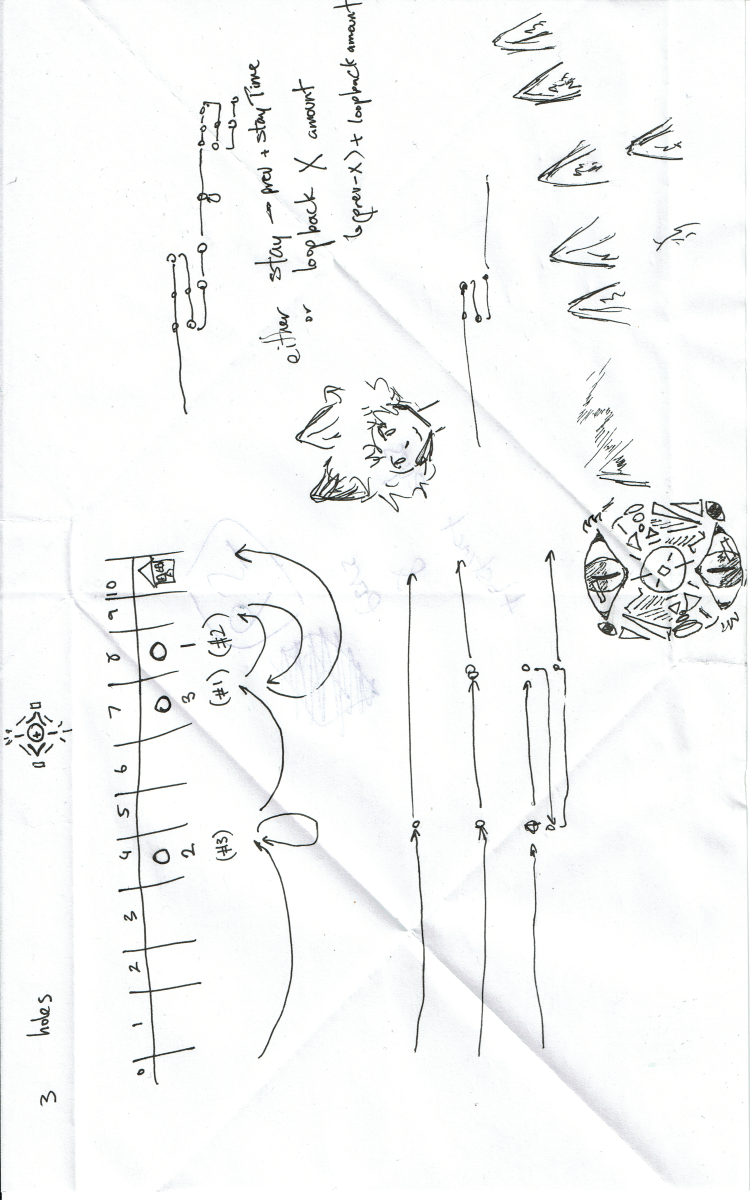 3 holes
0 1 2 3 4 5 6 7 8 9 10
2 3 1
(#3) (#1) (#2)
either stay → prev + stayTime
or loopback X amount
↳(prev-x) + loopback amount